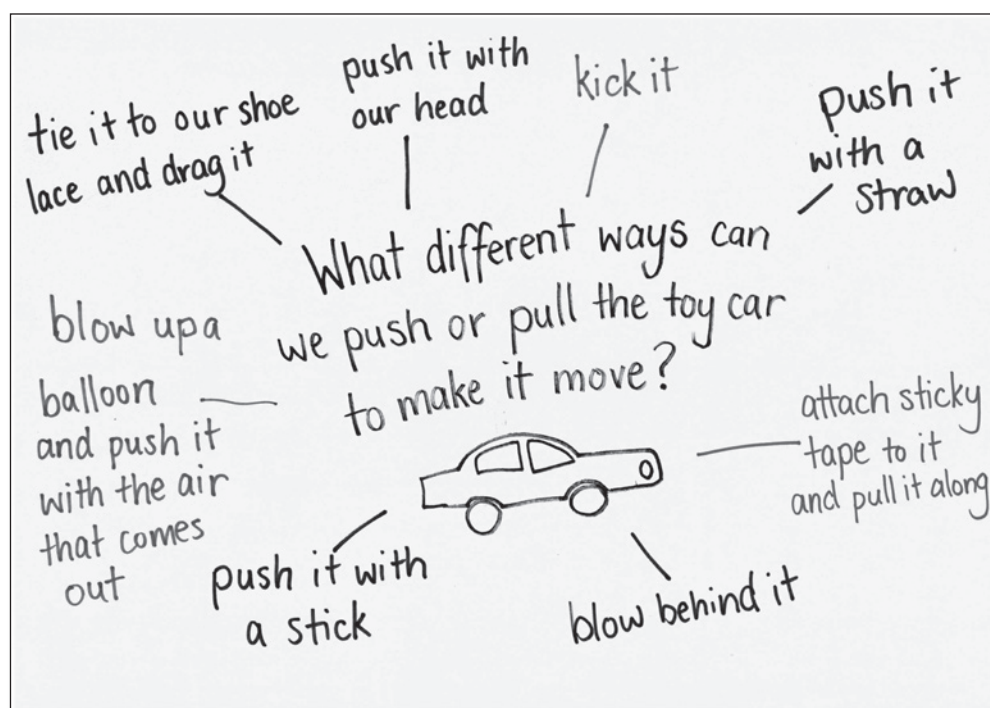 tie it to our shoe
lace and drag it
push it with
our head
kick it
push it
with a
straw
What different ways can
we push or pull the toy car
to make it move?
blow up a
balloon
and push it
with the air
that comes
out
attach sticky
tape to it
and pull it along
push it with
a stick
blow behind it